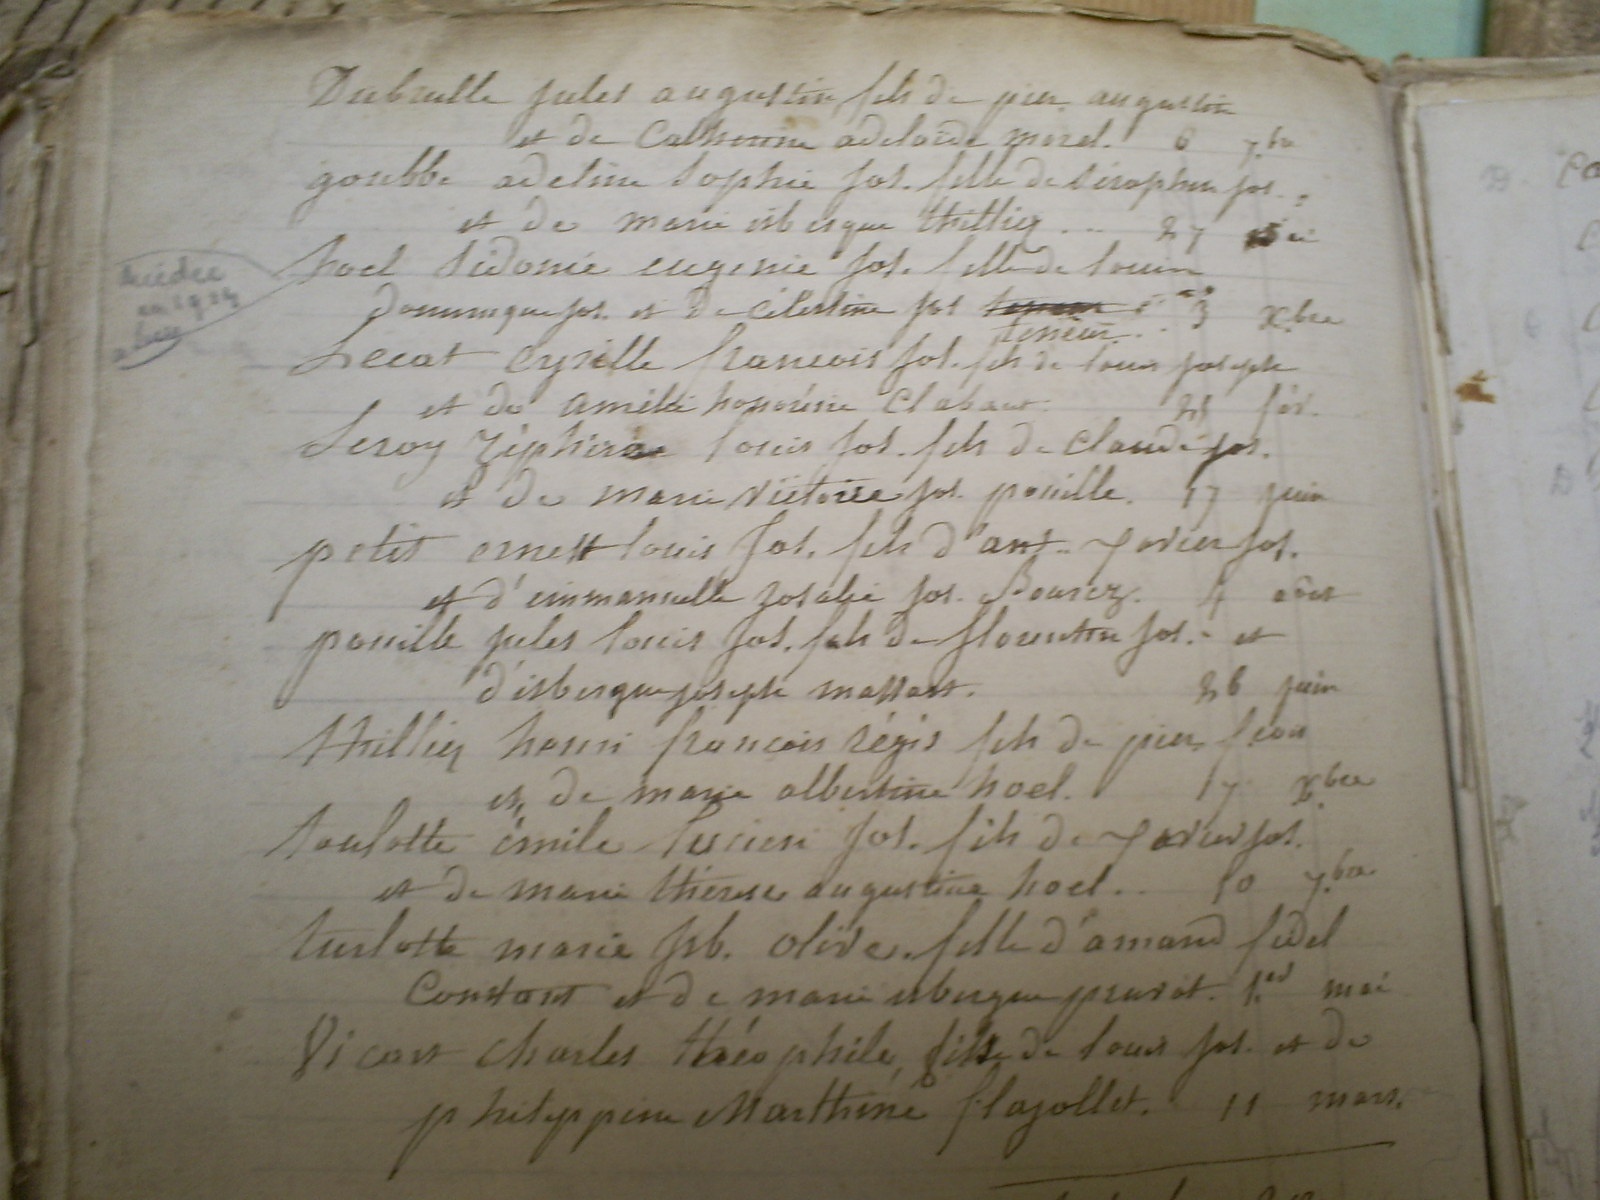 Dubrulle jules augustin fils de pier. augustin
et de Catherine adelaïde morel. 6 7.bre
goubbe adeline Sophie jos. fille de Séraphin jos.
et de marie isbergue thilliez .. 27
hoel Sidonie eugenie jos. fille de Louis
Dominique jos. et de Célestine jos Tesseur. 3 X.bre
décédée
en 1924
Lecat Cyrille francois jos. fils de Louis joseph
et de Amélie honorine Clabaut. fév.
Leroy Zéphirin Louis jos. fils de Claude jos.
et de marie Victoire jos. pouille. 17 juin
petit ernest Louis jos. fils d'ant. Xavier jos.
et d'emmanuelle rosalie jos. Boursez. 4 août
pouille jules Louis jos. fils de florentin jos. et
d'isbergue joseph massart. 26 juin
thilliez henri francois régis fils de pier. fcois
et de marie albertine hoel. 17 X.bre
toulotte émile Lucien jos. fils de Xavier jos.
et de marie thérèse augustine hoel.. 10 7.bre
turlotte marie jsb. olive. fille d'amand fidel
Constant et de marie isbergue pruvot. 1.er mai
Vicart Charles théophile, fils de Louis jos. et de
philyppine Marthine flajollet. 11 mars.